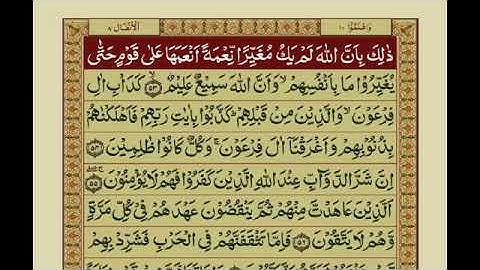 واعلموا ١٠ الانفال ٨
ذٰلِكَ بِاَنَّ اللّٰهَ لَمْ يَكُ مُغَيِّرًا نِّعْمَةً اَنْعَمَهَا عَلٰى قَوْمٍ حَتّٰى
يُغَيِّرُوْا مَا بِاَنْفُسِهِمْ ۙ وَاَنَّ اللّٰهَ سَمِيْعٌ عَلِيْمٌ ﴿٥٣﴾ كَدَاْبِ اٰلِ
فِرْعَوْنَ ۙ وَالَّذِيْنَ مِنْ قَبْلِهِمْ ؕ كَذَّبُوْا بِاٰيٰتِ رَبِّهِمْ فَاَهْلَكْنٰهُمْ
بِذُنُوْبِهِمْ وَاَغْرَقْنَاۤ اٰلَ فِرْعَوْنَ ۚ وَكُلٌّ كَانُوْا ظٰلِمِيْنَ ﴿٥٤﴾
اِنَّ شَرَّ الدَّوَآبِّ عِنْدَ اللّٰهِ الَّذِيْنَ كَفَرُوْا فَهُمْ لَا يُؤْمِنُوْنَ ﴿٥٥﴾
اَلَّذِيْنَ عَاهَدْتَّ مِنْهُمْ ثُمَّ يَنْقُضُوْنَ عَهْدَهُمْ فِيْ كُلِّ مَرَّةٍ
وَّهُمْ لَا يَتَّقُوْنَ ﴿٥٦﴾ فَاِمَّا تَثْقَفَنَّهُمْ فِي الْحَرْبِ فَشَرِّدْ بِهِمْ